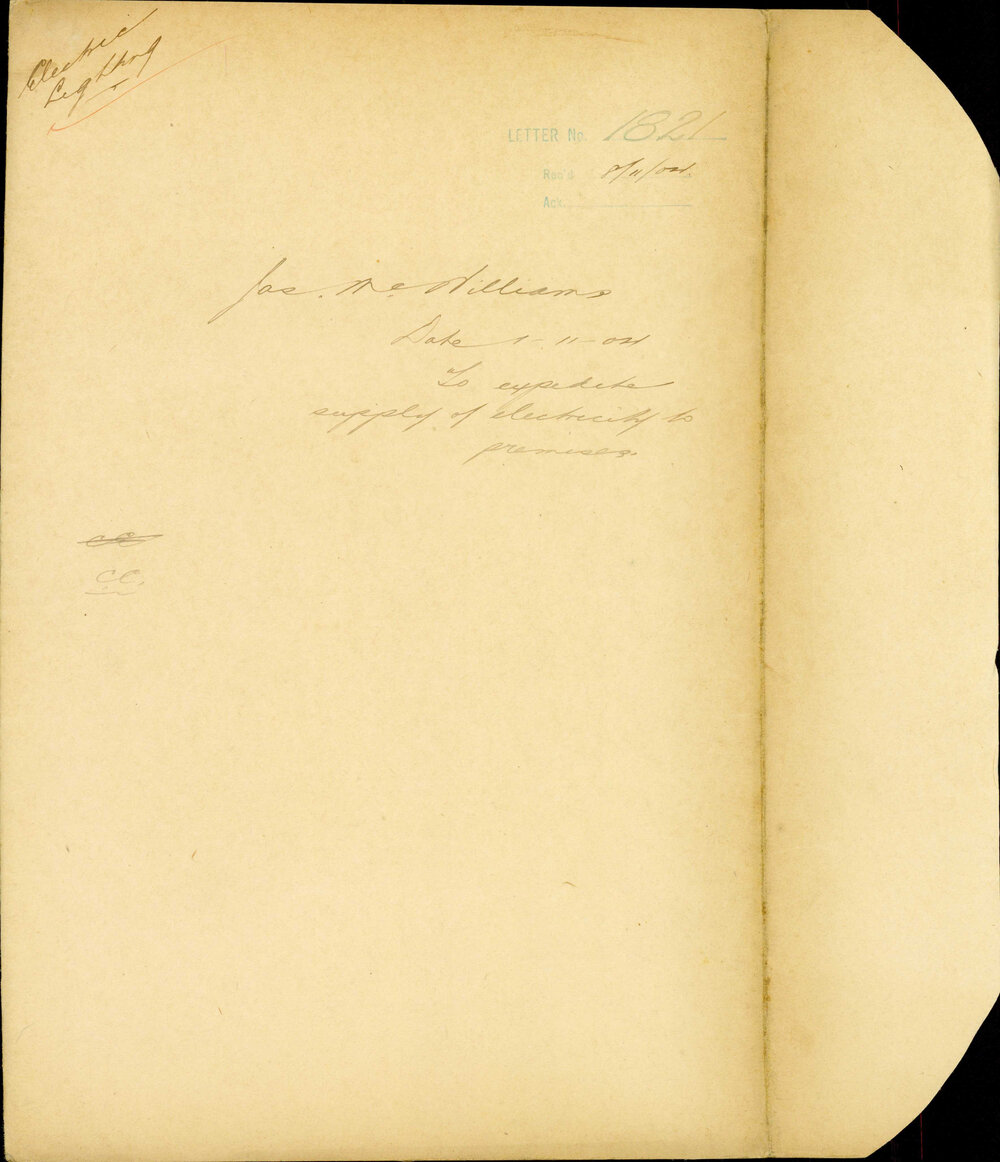 Electric
Lighting
LETTER No. 1821
Rec'd 8/11/04.
Ack.
Jas. Mc Williams
Date 1-11-04
To expedite
supply of electricity to
premises.
CC
CC.